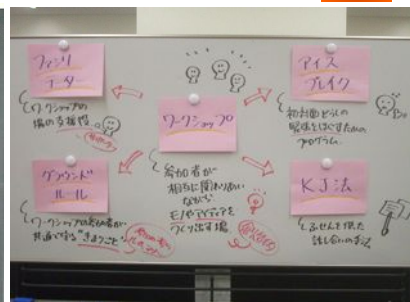 ファシリ
テーター
ワークショップの
場の支援役
ワークショップ
参加者が
相互に関わりあい
ながら
モノやアイディアを
つくり出す場
アイス
ブレイク
初対面どうしの
緊張をほぐすための
プログラム
グラウンド
ルール
ワークショップの参加者が
共通で守る"きまりごと"
KJ法
ふせんを使った
話し合いの方法